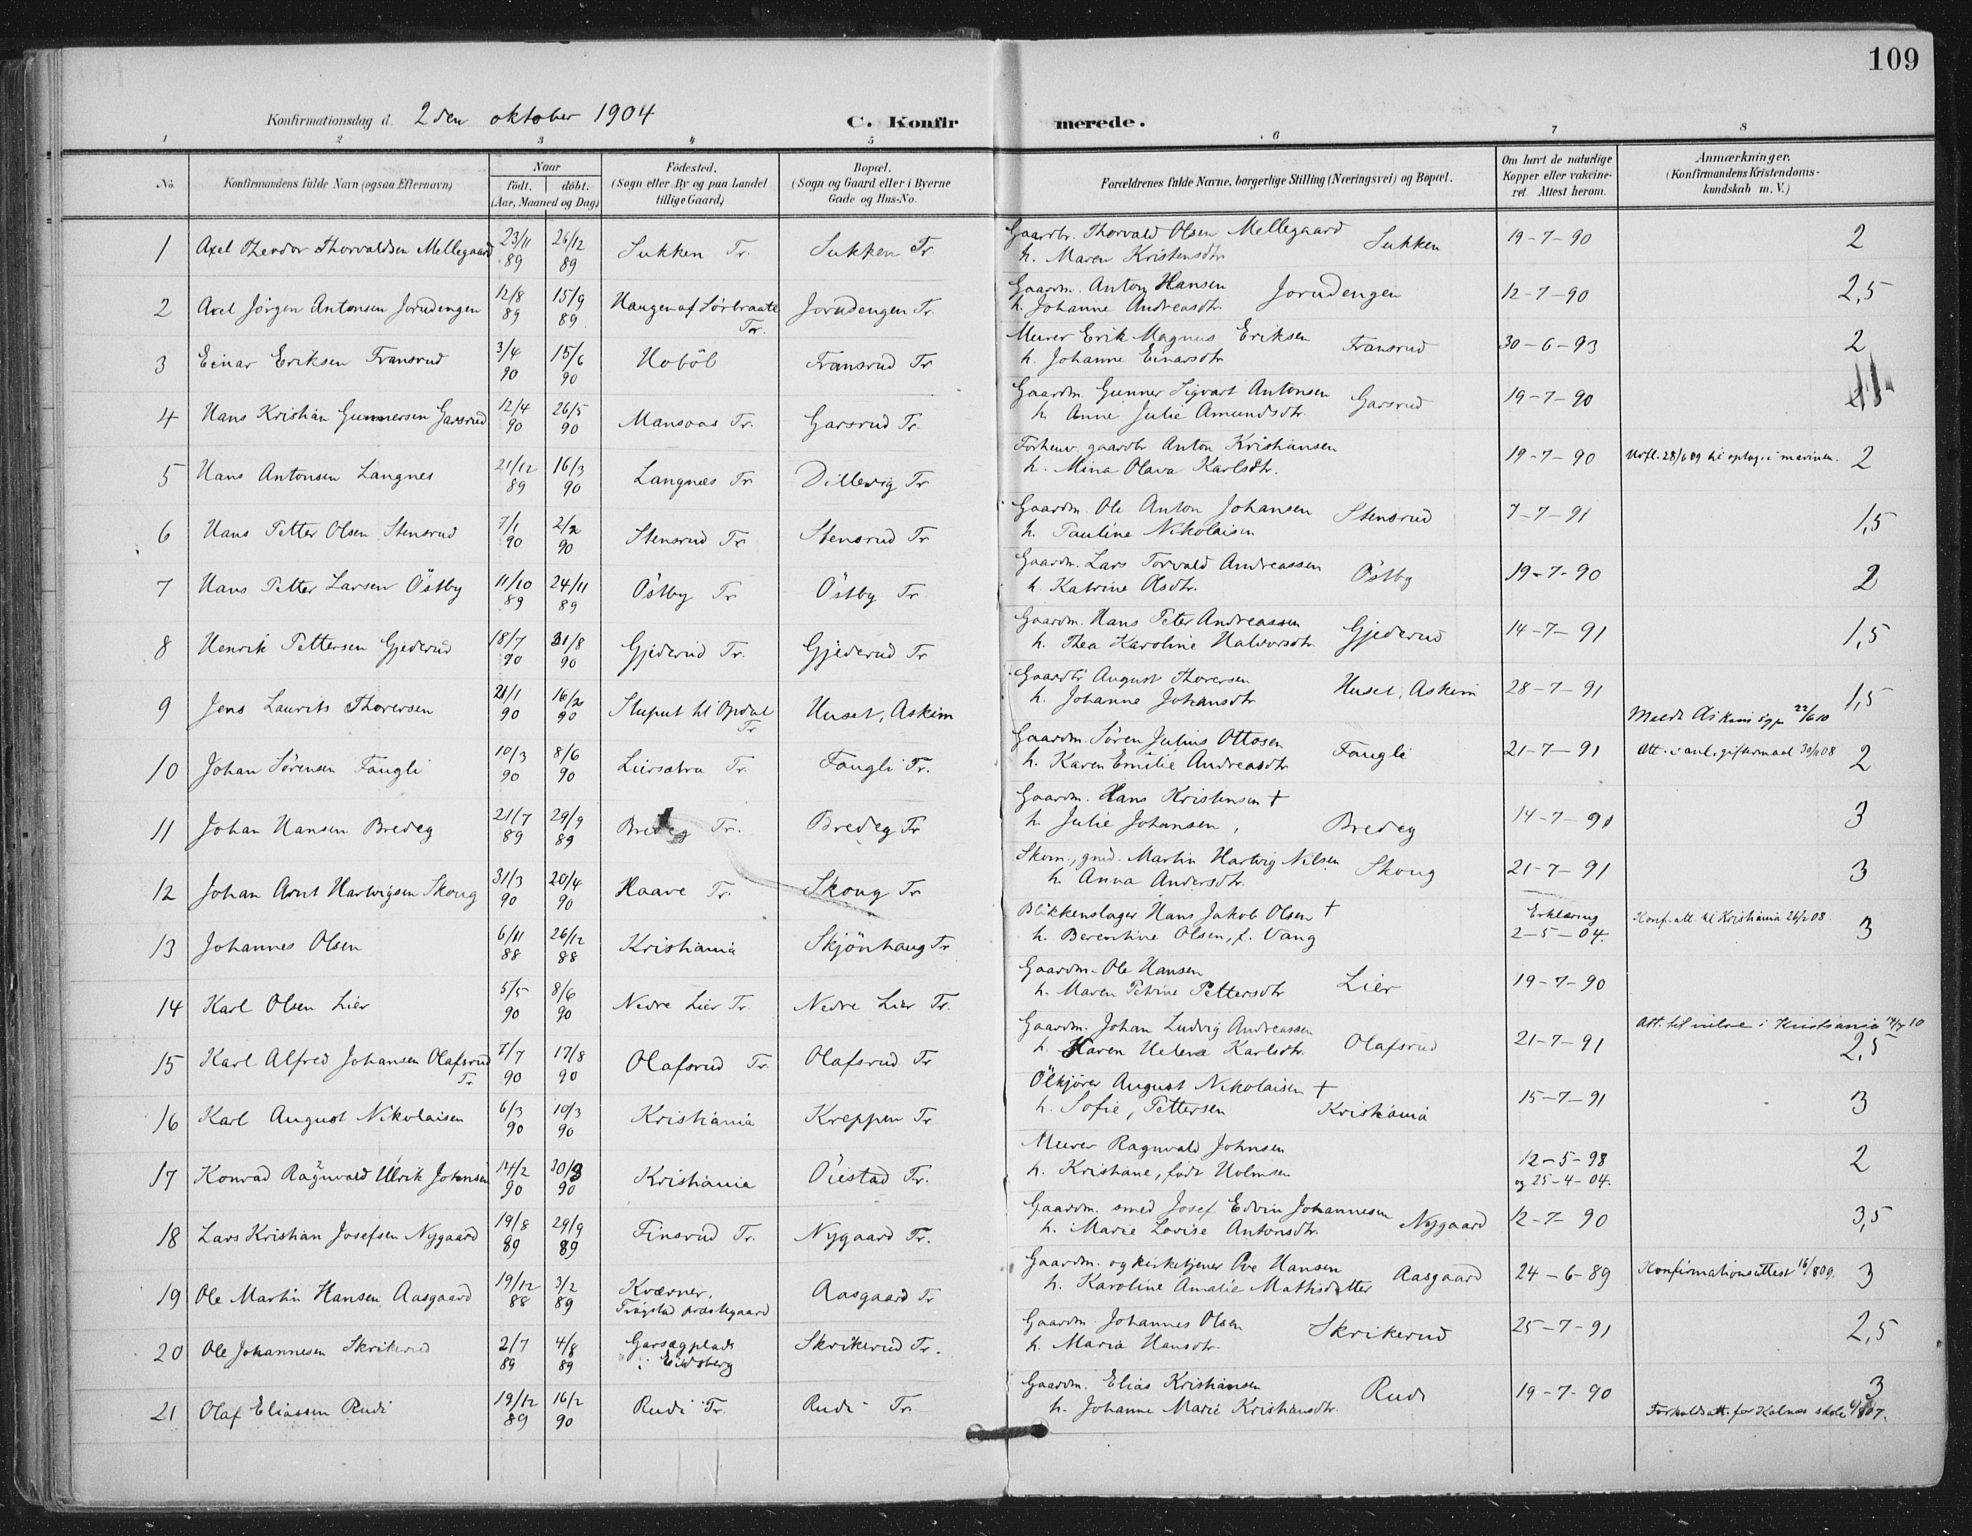 109
Konfirmationsdag d. 2den oktober 1904
C. Konfirmerede.
1 2 3 4 5 6 7 8
No. Konfirmandens fulde Navn (ogsaa Efternavn) Naar født. døbt. (Aar, Maaned og Dag) Fødested. (Sogn eller By og paa Landet tillige Gaard) Bopæl. (Sogn og Gaard eller i Byerne Gade og Hus-No. Forældrenes fulde Navne, borgerlige Stilling (Næringsvei) og Bopæl. Om havt de naturlige Kopper eller vakcineret. Attest herom. Anmærkninger. (Konfirmandens Kristendomskundskab m. V.)
1 Axel Theodor Thorvaldsen Mellegaard 23/11 89 26/12 89 Sukken Tr. Sukken Tr. Gaardbr. Thorvald Olsen Mellegaard Sukken 19-7-90 2
h. Maren Kristensdtr.
2 Axel Jörgen Antonsen Jorudengen 12/8 89 15/9 89 Haugen af Sörbraate Tr. Jorudengen Tr. Gaardm. Anton Hansen Jorudengen 12-7-90 2,5
h. Johanne Andreasdtr.
3 Einar Eriksen Fransrud 3/4 90 15/6 90 Hoböl Fransrud Tr. Murer Erik Magnus Eriksen Fransrud 30-6-93 2
h. Johanne Einarsdtr.
4 Hans Kristian Gunnersen Garsrud 12/4 90 26/5 90 Mansaas Tr. Garsrud Tr. Gaardm. Gunner Sigvart Antonsen Garsrud 19-7-90
h. Anne Julie Amundsdtr.
5 Hans Antonsen Langnes 21/12 89 16/3 90 Langnæs Tr. Dillevig Tr. Forhenv. gaardbr. Anton Kristiansen 19-7-90 28/6 09 til optag. i marinen. 2
h. Mina Olava Karlsdtr.
6 Hans Petter Olsen Stensrud 7/1 90 2/2 90 Stensrud Tr. Stensrud Tr. Gaardm. Ole Anton Johansen Stensrud 7-7-91 1,5
h. Pauline Nikolaisen
7 Hans Petter Larsen Östby 11/10 89 24/11 89 Östby Tr. Östby Tr. Gaardm. Lars Torvald Andreassen Östby 19-7-90 2
h. Katrine Olsdtr.
8 Henrik Pettersen Gjederud 18/7 90 31/8 90 Gjederud Tr. Gjederud Tr. Gaardm. Hans Peter Andreassen Gjederud 14-7-91 1,5
h. Thea Karoline Halvorsdtr.
9 Jens Laurits Thoresen 21/1 90 16/2 90 Stuput til Opdal Tr. Huset, Askim Gaardbr. August Thoresen Huset, Askim 28-7-91 1,5
h. Johanne Johansdtr. Meldt Askim sgp 22/6 10
10 Johan Sörensen Fougli 10/3 90 8/6 90 Liersætra Tr. Fougli Tr. Gaardm. Sören Julius Ottosen Fougli 21-7-91 Att. i anl. giftermaal 08 2
h. Karen Emilie Andreasdtr.
11 Johan Hansen Bredeg 21/7 89 29/9 89 Bredeg Tr. Bredeg Tr. Gaardm. Hans Kristensen † Bredeg 14-7-90 3
h. Julie Johansen,
12 Johan Arnt Hartvigsen Skoug 31/3 90 20/4 90 Haave Tr. Skoug Tr. Skom., gmd. Martin Hartvig Nilsen Skoug 21-7-91 3
h. Anna Andersdtr.
13 Johannes Olsen 6/11 88 26/12 88 Kristiania Skjönhaug Tr. Blikkenslager Hans Jakob Olsen † Erklæring 2-5-04. Konf. att. til Kristiania 08. 3
h. Berentine Olsen, f. Vang
14 Karl Olsen Lier 5/5 90 8/6 90 Nedre Lier Tr. Nedre Lier Tr. Gaardm. Ole Hansen Lier 19-7-90
h. Maren Petrine Pettersdtr.
15 Karl Alfred Johansen Olafsrud Tr. 7/7 90 17/8 90 Olafsrud Tr. Olafsrud Tr. Gaardm. Johan Ludvig Andreassen Olafsrud 21-7-91 Att. til i Kristiania 10 2,5
h. Karen Helene Karlsdtr.
16 Karl August Nikolaisen 6/3 90 10/3 90 Kristiania Kreppen Tr. Ölkjörer August Nikolaisen † Kristiania 15-7-91 3
h. Sofie, Pettersen
17 Konrad Ragnvald Ulrik Johnsen 14/2 90 30/3 90 Kristiania Öiestad Tr. Murer Ragnvald Johnsen 12-5-98 og 25-4-04. 2
h. Kristiane, født Holmsen
18 Lars Kristian Josefsen Nygaard 19/8 89 29/9 89 Finsrud Tr. Nygaard Tr. Gaardm. smed Josef Edvin Johannesen Nygaard 12-7-90 3,5
h. Marie Lovise Antonsdtr.
19 Ole Martin Hansen Aasgaard 19/12 88 3/2 89 Kværner, Trøgstad præstegaard Aasgaard Tr. Gaardm. og kirketjener Ove Hansen Aasgaard 24-6-89 Konfirmationsattest 16/8 09. 3
h. Karoline Amalie Mathisdatter
20 Ole Johannesen Skrikerud 2/7 89 4/8 89 Garsegplads i Eidsberg Skrikerud Tr. Gaardm. Johannes Olsen Skrikerud 25-7-91 2,5
h. Maria Hansdtr.
21 Olaf Eliassen Rudi 19/12 89 16/2 90 Rudi Tr. Rudi Tr. Gaardm. Elias Kristiansen Rudi 19-7-90 3
h. Johanne Marie Kristiansdtr. Forholdsatt. for Kalnæs skole 07.